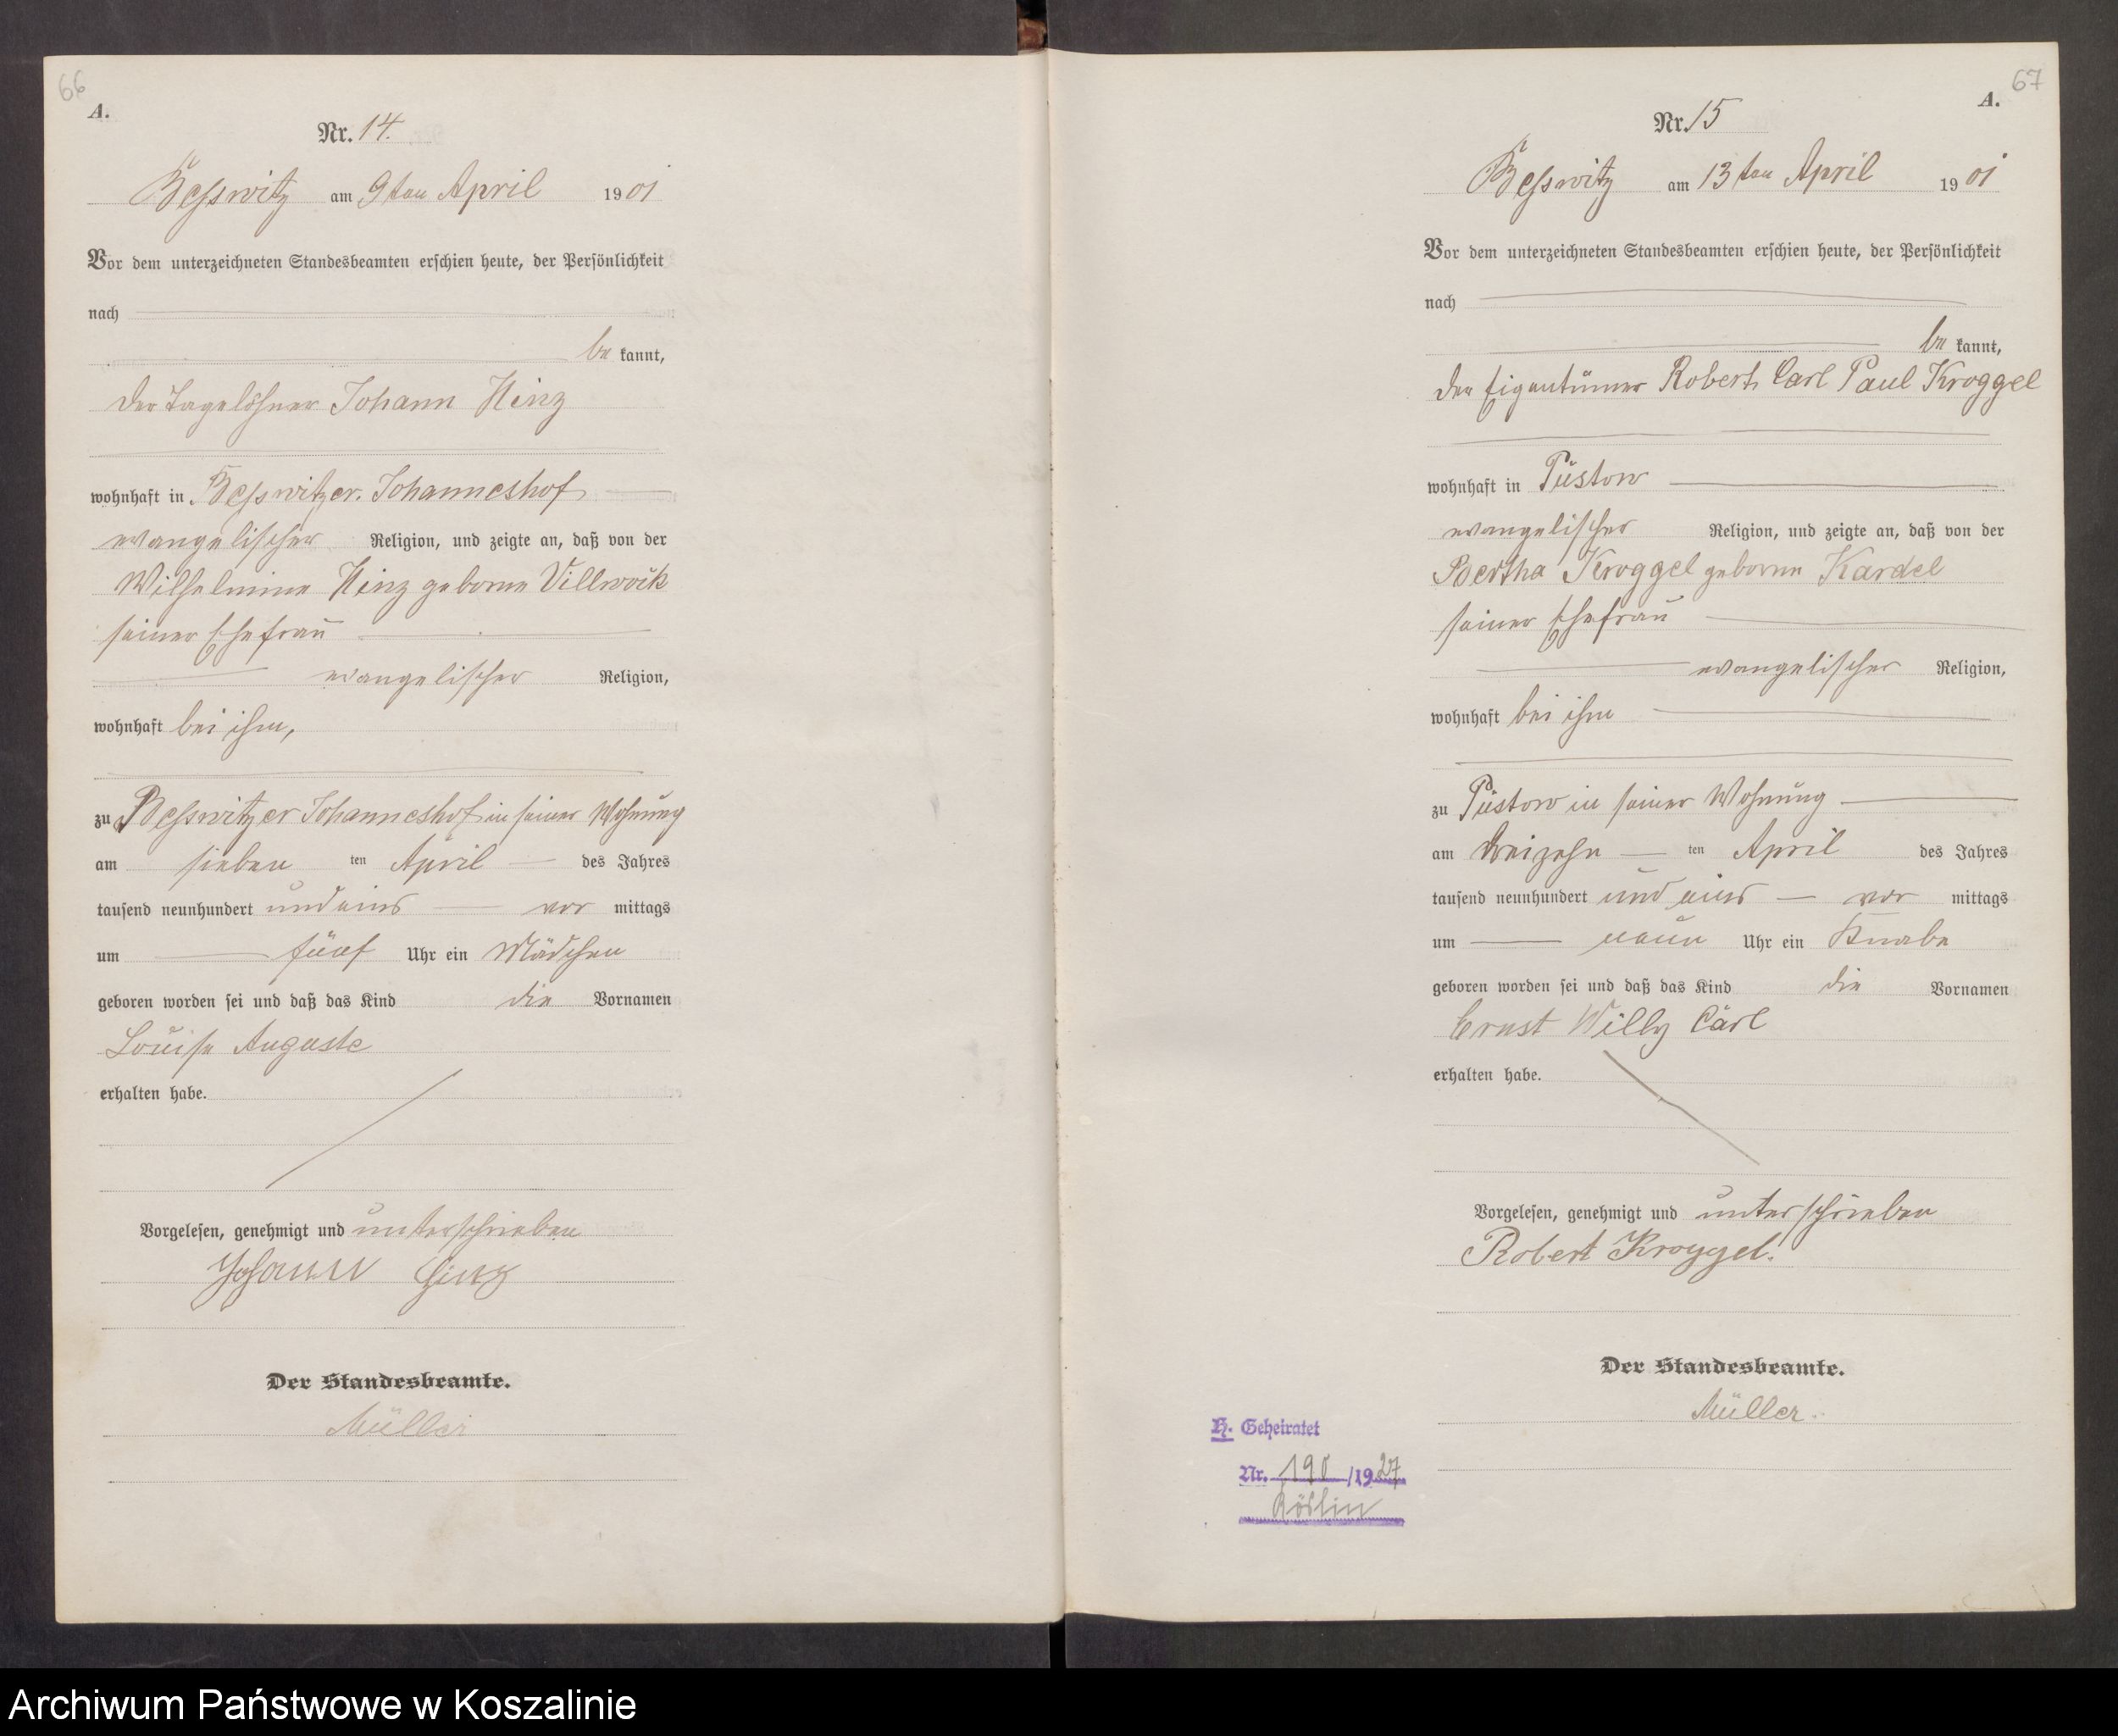 66
A.
Nr. 14.
Beßwitz am 9ten April 1901
Vor dem unterzeichneten Standesbeamten erschien heute, der Persönlichkeit
nach
be kannt,
der Tagelöhner Johann Hinz
wohnhaft in Beßwitzer Johanneshof
evangelischer Religion, und zeigte an, daß von der
Wilhelmine Hinz geborne Villwock
seiner Ehefrau
evangelischer Religion,
wohnhaft bei ihm,
zu Beßwitzer Johanneshof in seiner Wohnung
am sieben ten April des Jahres
tausend neunhundert und eins vor mittags
um fünf Uhr ein Mädchen
geboren worden sei und daß das Kind die Vornamen
Louise Auguste
erhalten habe.
Vorgelesen, genehmigt und unterschrieben
Johann Hinz
Der Standesbeamte.
Müller
67
A.
Nr. 15
Beßwitz am 13ten April 1901
Vor dem unterzeichneten Standesbeamten erschien heute, der Persönlichkeit
nach
be kannt,
der Eigentümer Robert Carl Paul Kroggel
wohnhaft in Püstow
evangelischer Religion, und zeigte an, daß von der
Bertha Kroggel geborne Kardel
seiner Ehefrau
evangelischer Religion,
wohnhaft bei ihm
zu Püstow in seiner Wohnung
am dreizehn ten April des Jahres
tausend neunhundert und eins vor mittags
um neun Uhr ein Knabe
geboren worden sei und daß das Kind die Vornamen
Ernst Willy Carl
erhalten habe.
Vorgelesen, genehmigt und unterschrieben
Robert Kroggel.
Der Standesbeamte.
Müller.
H. Geheiratet
Nr. 190/1927
Köslin
Archiwum Państwowe w Koszalinie